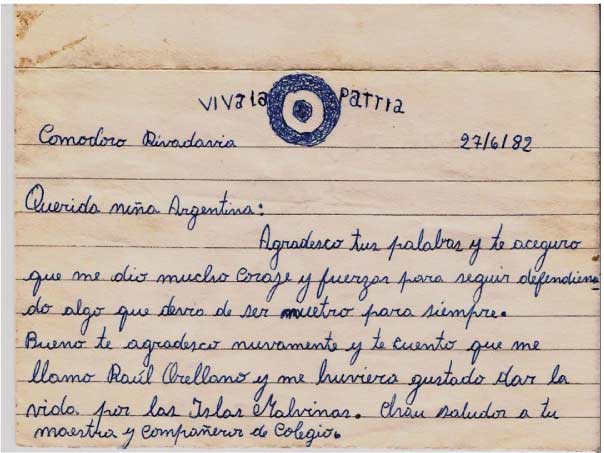 VIVA la PATRIA
Comodoro Rivadavia 27/6/82
Querida niña Argentina:
Agradesco tus palabras y te aceguro
que me dio mucho coraje y fuerzas para seguir defendien
do algo que devria de ser nuetro para siempre.
Bueno te agradesco nuvamente y te cuento que me
llamo Raúl Orellano y me huviera gustado dar la
vida por las Islas Malvinas. Chau saludos a tu
maestra y compañeros de Colegio.